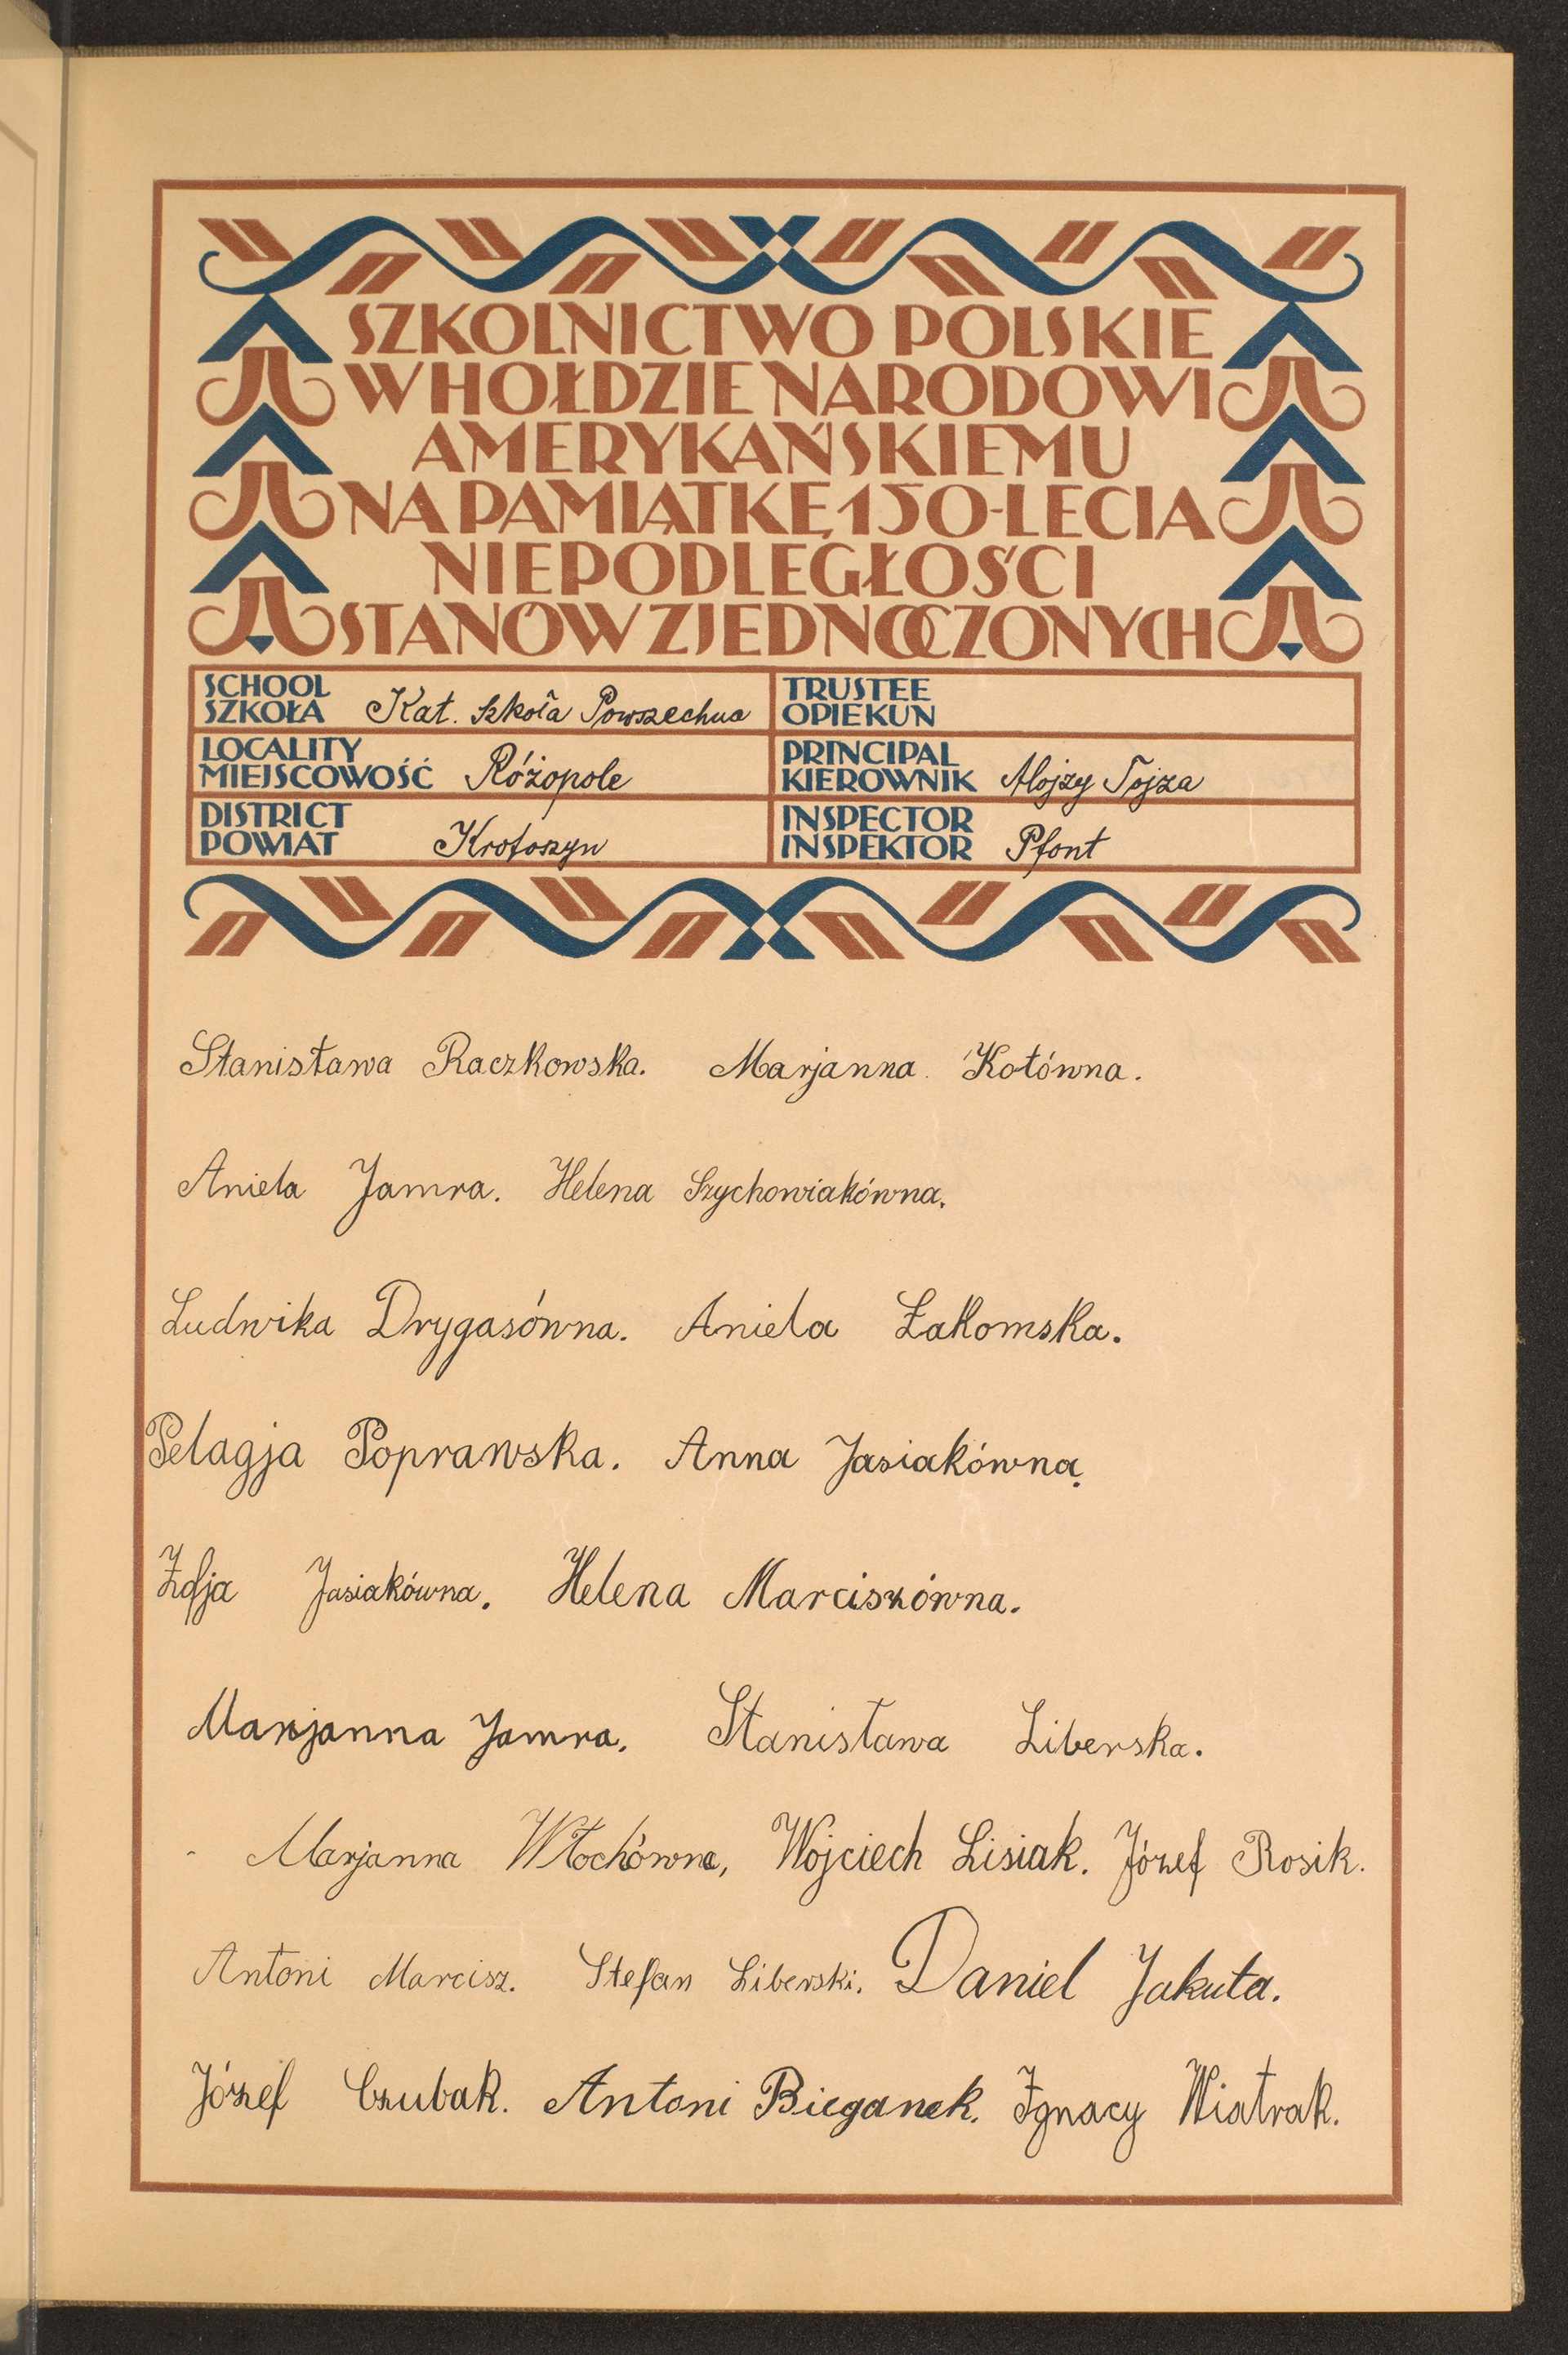 SZKOLNICTWO POLSKIE
W HOŁDZIE NARODOWI
AMERYKAŃSKIEMU
NA PAMIĄTKĘ 150-LECIA
NIEPODLEGŁOŚCI
STANÓW ZJEDNOCZONYCH
SCHOOL
SZKOŁA Kat. Szkoła Powszechna
TRUSTEE
OPIEKUN
LOCALITY
MIEJSCOWOŚĆ Różopole
PRINCIPAL
KIEROWNIK Alojzy Tojza
DISTRICT
POWIAT Krotoszyn
INSPECTOR
INSPEKTOR Pfont
Stanisława Raczkowska. Marjanna Kotówna.
Aniela Jamra. Helena Szychowiakówna.
Ludwika Drygasówna. Aniela Łakomska.
Pelagja Poprawska. Anna Jasiakówna.
Zofja Jasiakówna. Helena Marciszówna.
Marjanna Jamra. Stanisława Liberska.
Marjanna Włochówna, Wojciech Lisiak. Józef Rosik.
Antoni Marcisz. Stefan Liberski. Daniel Jakuta.
Józef Czubak. Antoni Bieganek. Ignacy Wiatrak.